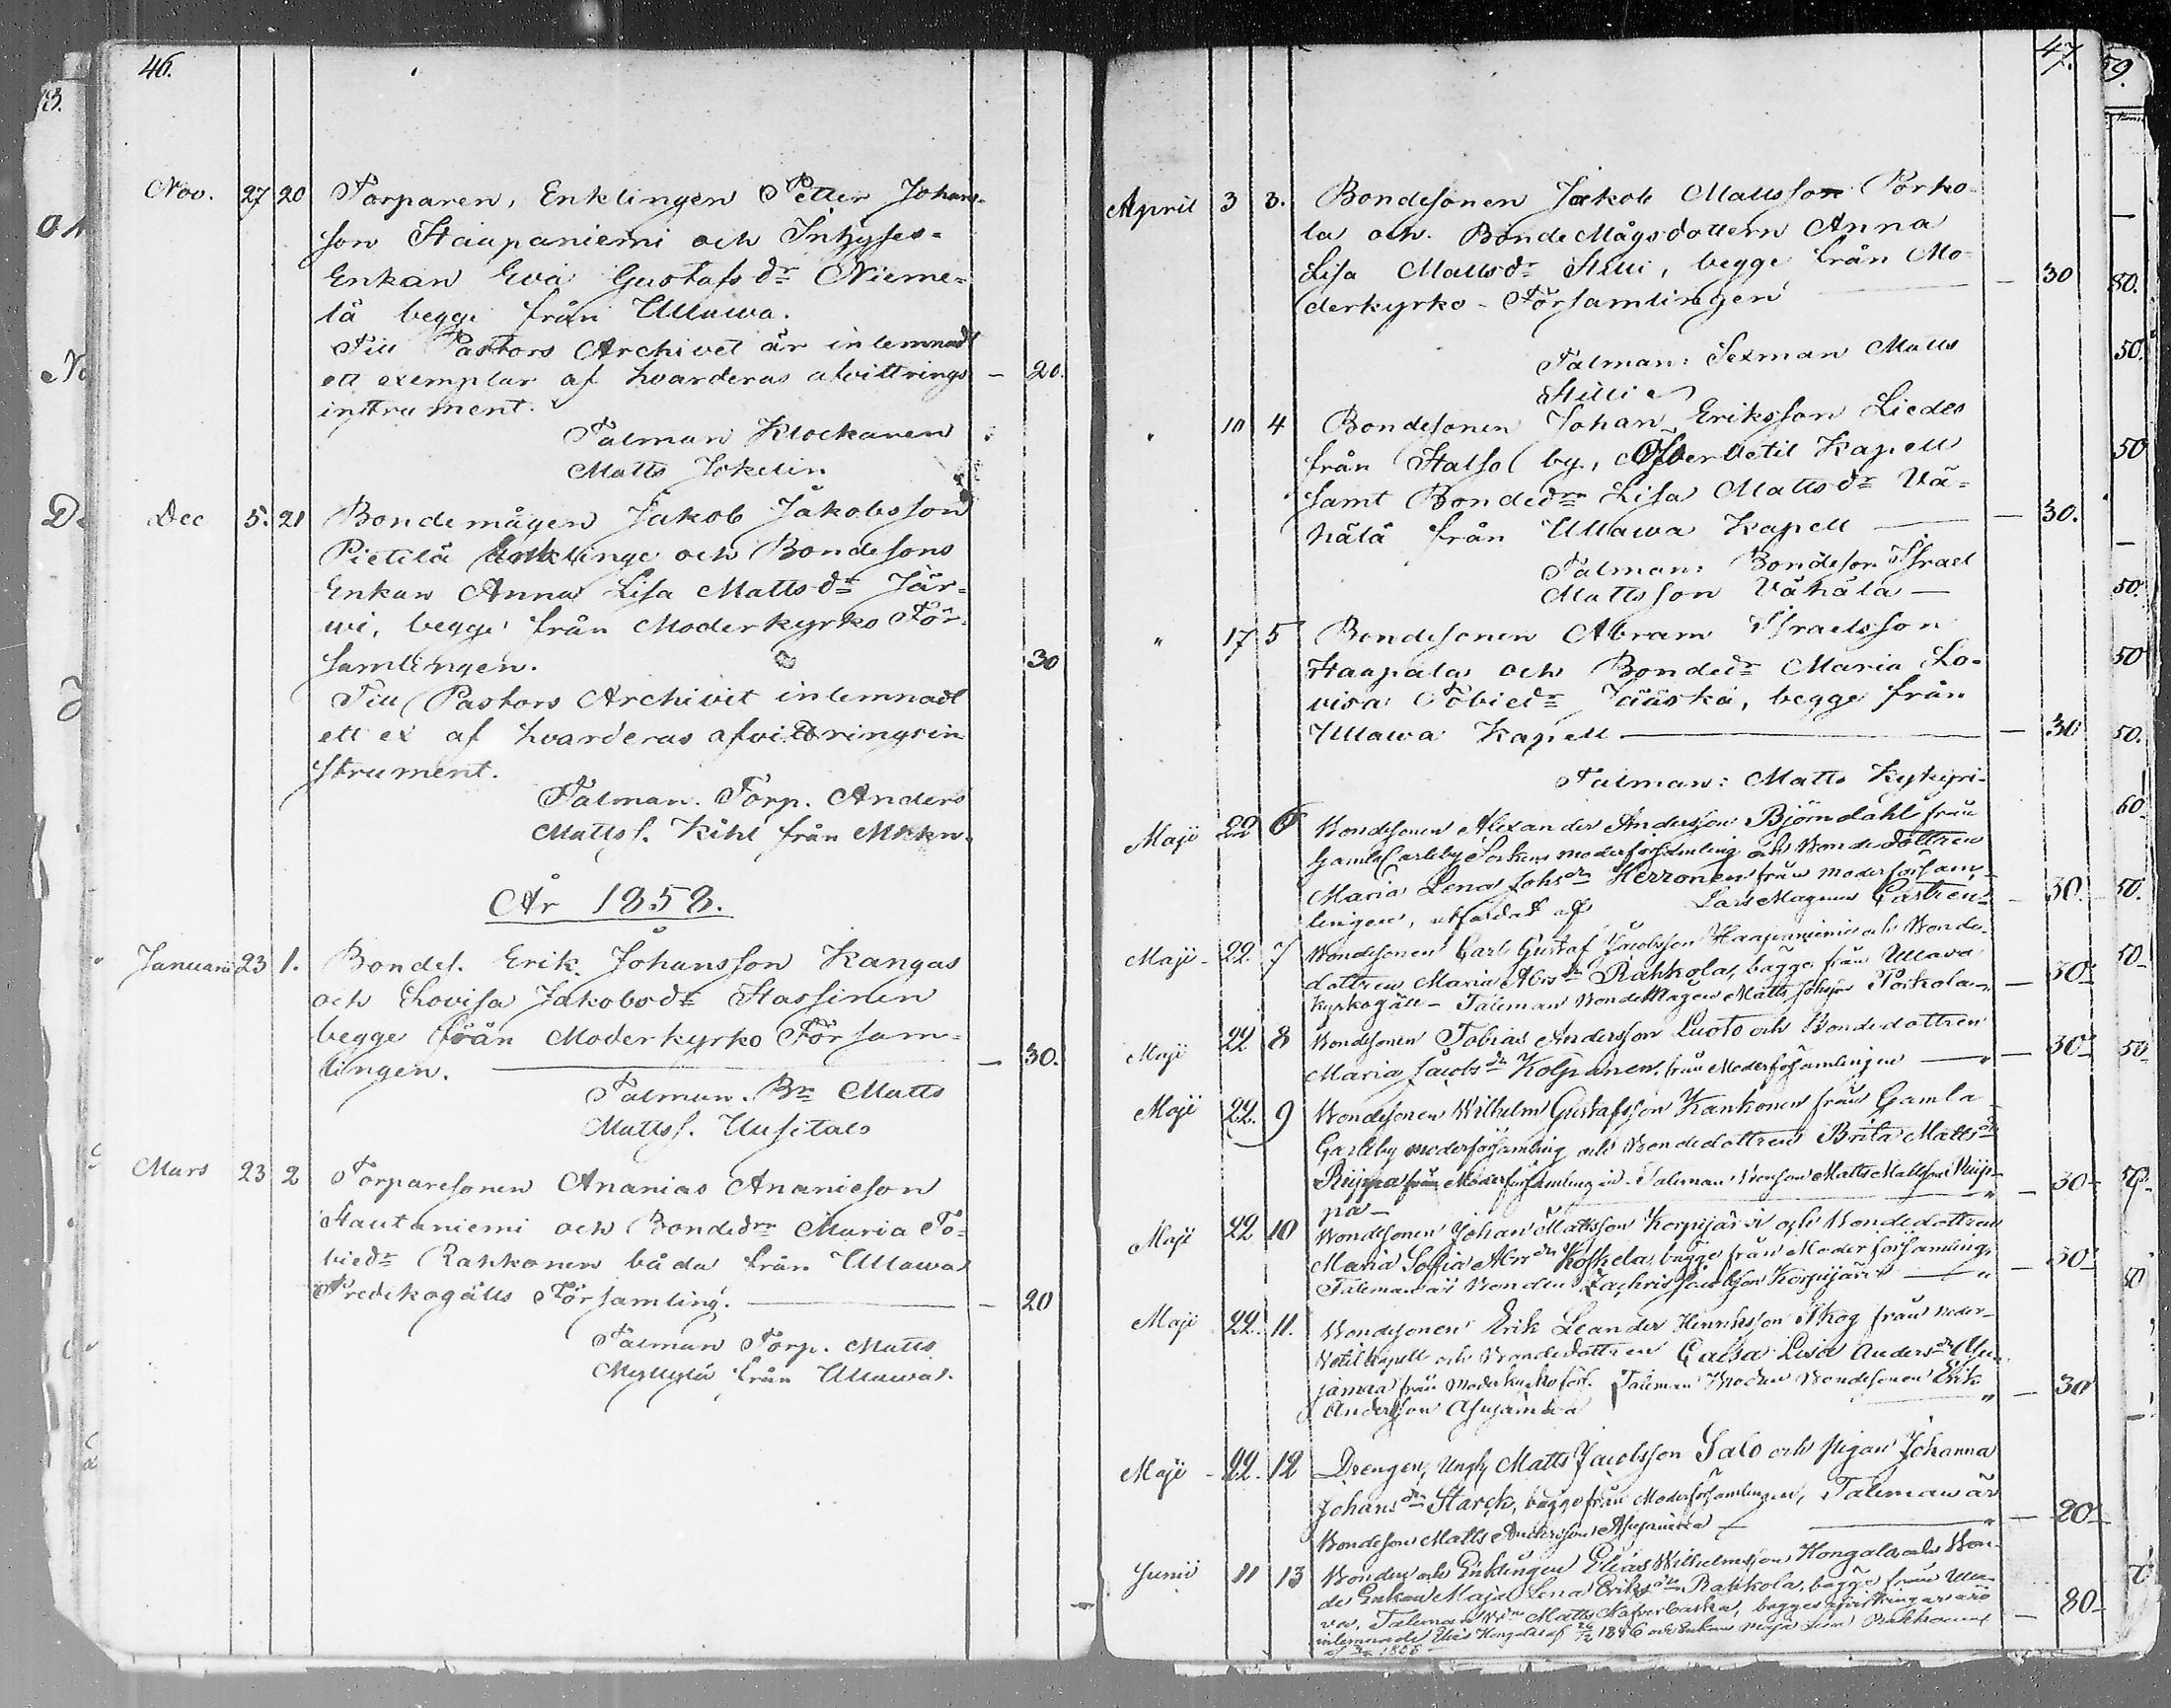 46.
Nov. 27 20 Torparen, Enklingen Petter Johans-
son Haapaniemi och Inhyses-
Enkan Eva Gustafsdr Nieme-
lä begge från Ullawa.
Till Pastors Archivet är inlemnadt
ett exemplar af hvarderas afvittrings- — 20.
instrument.
Talman Klockaren
Matts Jokelin
Dec 5. 21 Bondemågen Jakob Jakobsson
Pietilä Enklinge och Bondesons
Enkan Anna Lisa Mattsdr Jär-
wi, begge från Moderkyrko För-
samlingen. 30
Till Pastors Archivet inlemnadt
ett ex af hvarderas afvittringsin
strument.
Talman. Torp. Anders
Mattss. Kihl från Mkkn.
År 1858.
Januari 23 1. Bondes. Erik Johansson Kangas
och Lovisa Jakobsdr Hassinen
begge från Moderkyrko Försam-
lingen. — 30.
Talman. Bn Matts
Mattss. Uusitalo
Mars 23 2 Torparesonen Ananias Ananieson
Hautaniemi och Bondedrn Maria To-
biedr Rahkonen båda från Ullawa
Predikogälls Församling. — 20
Talman Torp. Matts
Myllylä från Ullawa.
47.
April 3 3. Bondesonen Jakob Mattsson Porko-
la och Bonde Mågsdottern Anna
Lisa Mattsdr Hilli, begge från Mo-
derkyrko-Församlingen — 30
Talman: Sexman Matts
Hilli
" 10 4 Bondesonen Johan Eriksson Liedes
från Halso by, Öfver Vetil Kapell
samt Bondedrn Lisa Mattsdr Vä-
hälä från Ullawa Kapell — 30.
Talman: Bondeson Israel
Mattsson Vähälä —
" 17 5 Bondesonen Abram Israelsson
Haapala och Bondedr Maria Lo-
visa Tobiedr Jääskä, begge från
Ullawa Kapell — 30
Talman: Matts Kykyri
Maji 22 6 Bondesonen Alexander Andersson Björndahl från
Gamla Carleby Socken moderförsamling och Bondedottren
Maria Lena Johsdr Herronen från moderförsam-
lingen, utfärdat af Lars Magnus Castren — 30.
Maji 22. 7 Bondesonen Carl Gustaf Jacobsson Haapaniemi och Bonde-
dottren Maria Abrsdr Rahkola, bägge från Ullava
Kyrkogäll — Taleman Bonde Mågen Matts Johsson Porkola — 30
Maji 22 8 Bondesonen Tobias Andersson Luoto och Bondedottren
Maria Jacobsdr Kolpanen, från Moderförsamlingen — 30
Maji 22. 9 Bondesonen Wilhelm Gustafsson Kankonen från Gamla
Carleby moderförsamling och Bondedottren Brita Mattsdr
Riippa från Moderförsamlingen. Taleman Bonson Matts Mattsson Riip-
pa — 30
Maji 22 10 Bondesonen Johan Mattsson Korpijärvi och Bondedottren
Maria Sofia Abrsdr Koskela, bägge från Moderförsamling.
Taleman är Bonden Zachris Jacobsson Korpijärvi — 30
Maji 22. 11. Bondesonen Erik Leander Henriksson Skog från Neder-
Vetil Kapell och Bondedottren Caisa Lisa Andersdr
från Moderkyrkoförs. Taleman Brodren Bondesonen Erik
Andersson — 30
Maji 22. 12 Drengen, Ungk. Matts Jacobsson Salo och pigan Johanna
Johansdr Starck, bägge från Moderförsamlingen, Taleman är
Bondeson Matts Andersson — 20
Junii 11 13 Bonden och Enklingen Elias Wilhelmsson Hongala och Bon-
de Enkan Maja Lena Eriksdr Rahkola, bägge från Ulla-
va, Taleman Bn Matts, begges afvittringar äro
inlemnade Elias Hongalas af 1846 och Enkans Maja Lena — 80